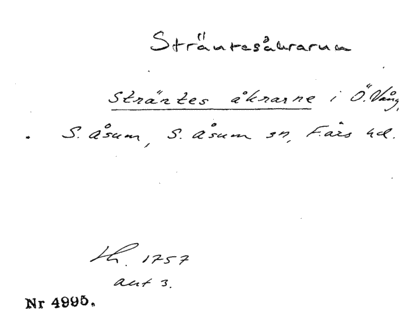 Sträntesåkrarna
Sträntes åkrarne i Ö. Vång,
S. Åsum, S. Åsum sn, Färs hd.
Lh. 1757
akt 3.
Nr 4995.